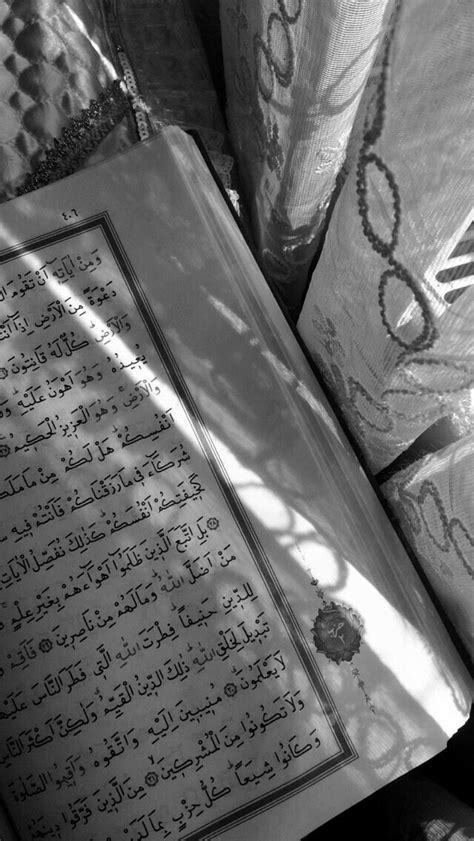 ٤٠٦
وَمِنْ اٰيَاتِهٖٓ اَنْ تَقُومَ
دَعْوَةً مِنَ الْاَرْضِ اِذَٓا
وَالْاَرْضِۜ كُلٌّ لَهُ قَانِتُونَ
يُعِيدُهُ وَهُوَ اَهْوَنُ عَلَيْهِۜ
وَالْاَرْضِۚ وَهُوَ الْعَزِيزُ الْحَكِيمُ
اَنْفُسِكُمْۜ هَلْ لَكُمْ مِنْ مَا
شُرَكَٓاءَ فِي مَا رَزَقْنَاكُمْ فَاَنْتُمْ فِيهِ
كَخِيفَتِكُمْ اَنْفُسَكُمْۜ كَذٰلِكَ نُفَصِّلُ الْاٰيَاتِ
٢٨ بَلِ اتَّبَعَ الَّذِينَ ظَلَمُٓوا اَهْوَٓاءَهُمْ بِغَيْرِ عِلْمٍۚ
مَنْ اَضَلَّ اللّٰهُۜ وَمَا لَهُمْ مِنْ نَاصِرِينَ ٢٩ فَاَقِمْ
لِلدِّينِ حَنِيفًاۜ فِطْرَتَ اللّٰهِ الَّتِي فَطَرَ النَّاسَ عَلَيْهَا
تَبْدِيلَ لِخَلْقِ اللّٰهِۜ ذٰلِكَ الدِّينُ الْقَيِّمُۗ وَلٰكِنَّ اَكْثَرَ النَّاسِ
لَا يَعْلَمُونَ ٣٠ مُنِيبِينَ اِلَيْهِ وَاتَّقُوهُ وَاَقِيمُوا الصَّلٰوةَ
وَلَا تَكُونُوا مِنَ الْمُشْرِكِينَ ٣١ مِنَ الَّذِينَ فَرَّقُوا دِينَهُمْ
وَكَانُوا شِيَعًاۜ كُلُّ حِزْبٍ بِمَا لَدَيْهِمْ
حزب